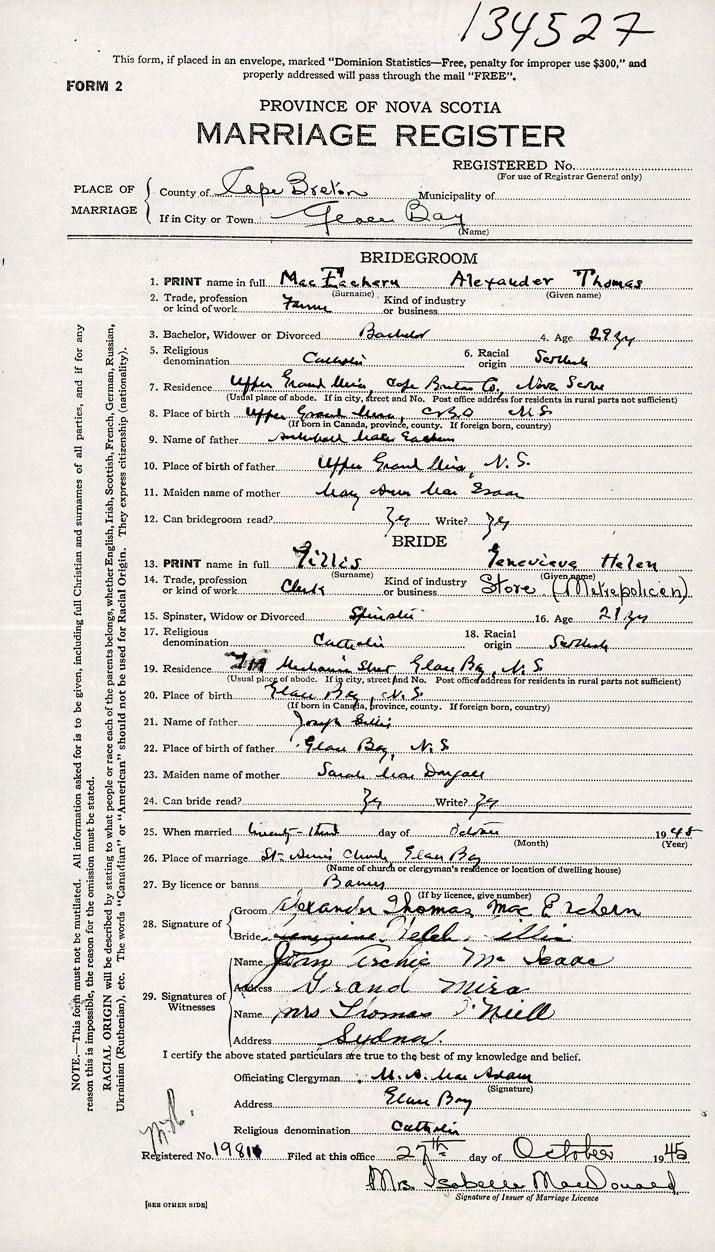 134527
This form, if placed in an envelope, marked "Dominion Statistics—Free, penalty for improper use $300," and
properly addressed will pass through the mail "FREE".
FORM 2
PROVINCE OF NOVA SCOTIA
MARRIAGE REGISTER
REGISTERED No.
(For use of Registrar General only)
PLACE OF MARRIAGE
County of Cape Breton Municipality of
If in City or Town Glace Bay
(Name)
BRIDEGROOM
1. PRINT name in full MacEachern Alexander Thomas
(Surname) (Given name)
2. Trade, profession or kind of work Farmer Kind of industry or business
3. Bachelor, Widower or Divorced Bachelor 4. Age 29 yr
5. Religious denomination Catholic 6. Racial origin Scottish
7. Residence Upper Grand Mira, Cape Breton Co, Nova Scotia
(Usual place of abode. If in city, street and No. Post office address for residents in rural parts not sufficient)
8. Place of birth Upper Grand Mira, C.B.Co N.S.
(If born in Canada, province, county. If foreign born, country)
9. Name of father Archibald Mac Eachern
10. Place of birth of father Upper Grand Mira, N.S.
11. Maiden name of mother Mary Ann Mac Isaac
12. Can bridegroom read? Yes Write? Yes
BRIDE
13. PRINT name in full Gillis Genevieve Helen
(Surname) (Given name)
14. Trade, profession or kind of work Clerk Kind of industry or business Store (Metropolitan)
15. Spinster, Widow or Divorced Spinster 16. Age 21 yr
17. Religious denomination Catholic 18. Racial origin Scottish
19. Residence Street Glace Bay, N.S
(Usual place of abode. If in city, street and No. Post office address for residents in rural parts not sufficient)
20. Place of birth Glace Bay, N.S.
(If born in Canada, province, county. If foreign born, country)
21. Name of father Joseph Gillis
22. Place of birth of father Glace Bay, N.S
23. Maiden name of mother Sarah Mac Dougall
24. Can bride read? Yes Write? Yes
25. When married twenty-third day of October 1945
(Month) (Year)
26. Place of marriage St. Ann's Church, Glace Bay
(Name of church or clergyman's residence or location of dwelling house)
27. By licence or banns Banns
(If by licence, give number)
28. Signature of
Groom Alexander Thomas MacEachern
Bride Genevieve Helen Gillis
29. Signatures of Witnesses
Name John Archie McIsaac
Address Grand Mira
Name Mrs Thomas O'Neill
Address Sydney.
I certify the above stated particulars are true to the best of my knowledge and belief.
Officiating Clergyman M. A. MacAdam
(Signature)
Address Glace Bay
Religious denomination Catholic
Registered No. Filed at this office 27th day of October 1945
Mrs. Isabelle MacDonald
Signature of Issuer of Marriage Licence
[SEE OTHER SIDE]
NOTE.—This form must not be mutilated. All information asked for is to be given, including full Christian and surnames of all parties, and if for any
reason this is impossible, the reason for the omission must be stated.
RACIAL ORIGIN will be described by stating to what people or race each of the parents belongs, whether English, Irish, Scottish, French, German, Russian,
Ukrainian (Ruthenian), etc. The words "Canadian" or "American" should not be used for Racial Origin. They express citizenship (nationality).